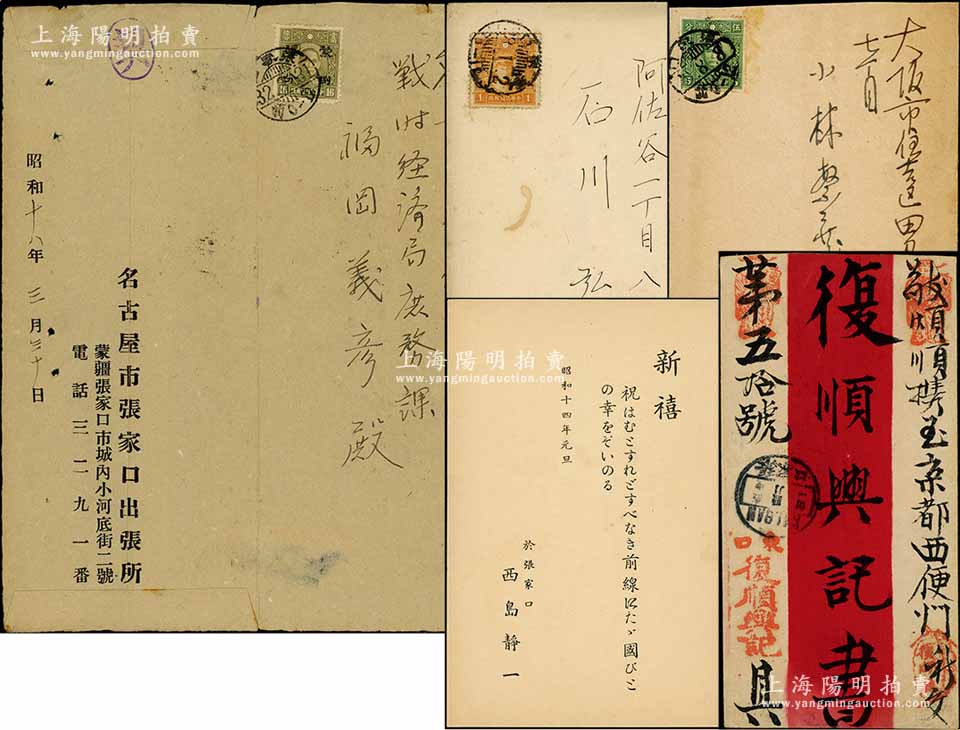 上海陽明拍賣
www.yangmingauction.com
戦时経済局庶務課
福岡義彦殿
名古屋市張家口出張所
蒙疆張家口市城內小河底街二號
電話三二九一番
昭和十八年三月三十日
阿佐谷一丁目八
石川弘
大阪市住吉區田
七一目
小林
新禧
祝はむとすれどすべなき前線にたゝ國びと
の幸をぞいのる
昭和十四年元旦
於張家口
西島靜一
敬煩順携至京都西便门
復順興記書
第五拾號
具
東口
復順興記
上海陽明拍賣
www.yangmingauction.com
上海陽明拍賣
www.yangmingauction.com
上海陽明拍賣
www.yangmingauction.com
上海陽明拍賣
www.yangmingauction.com